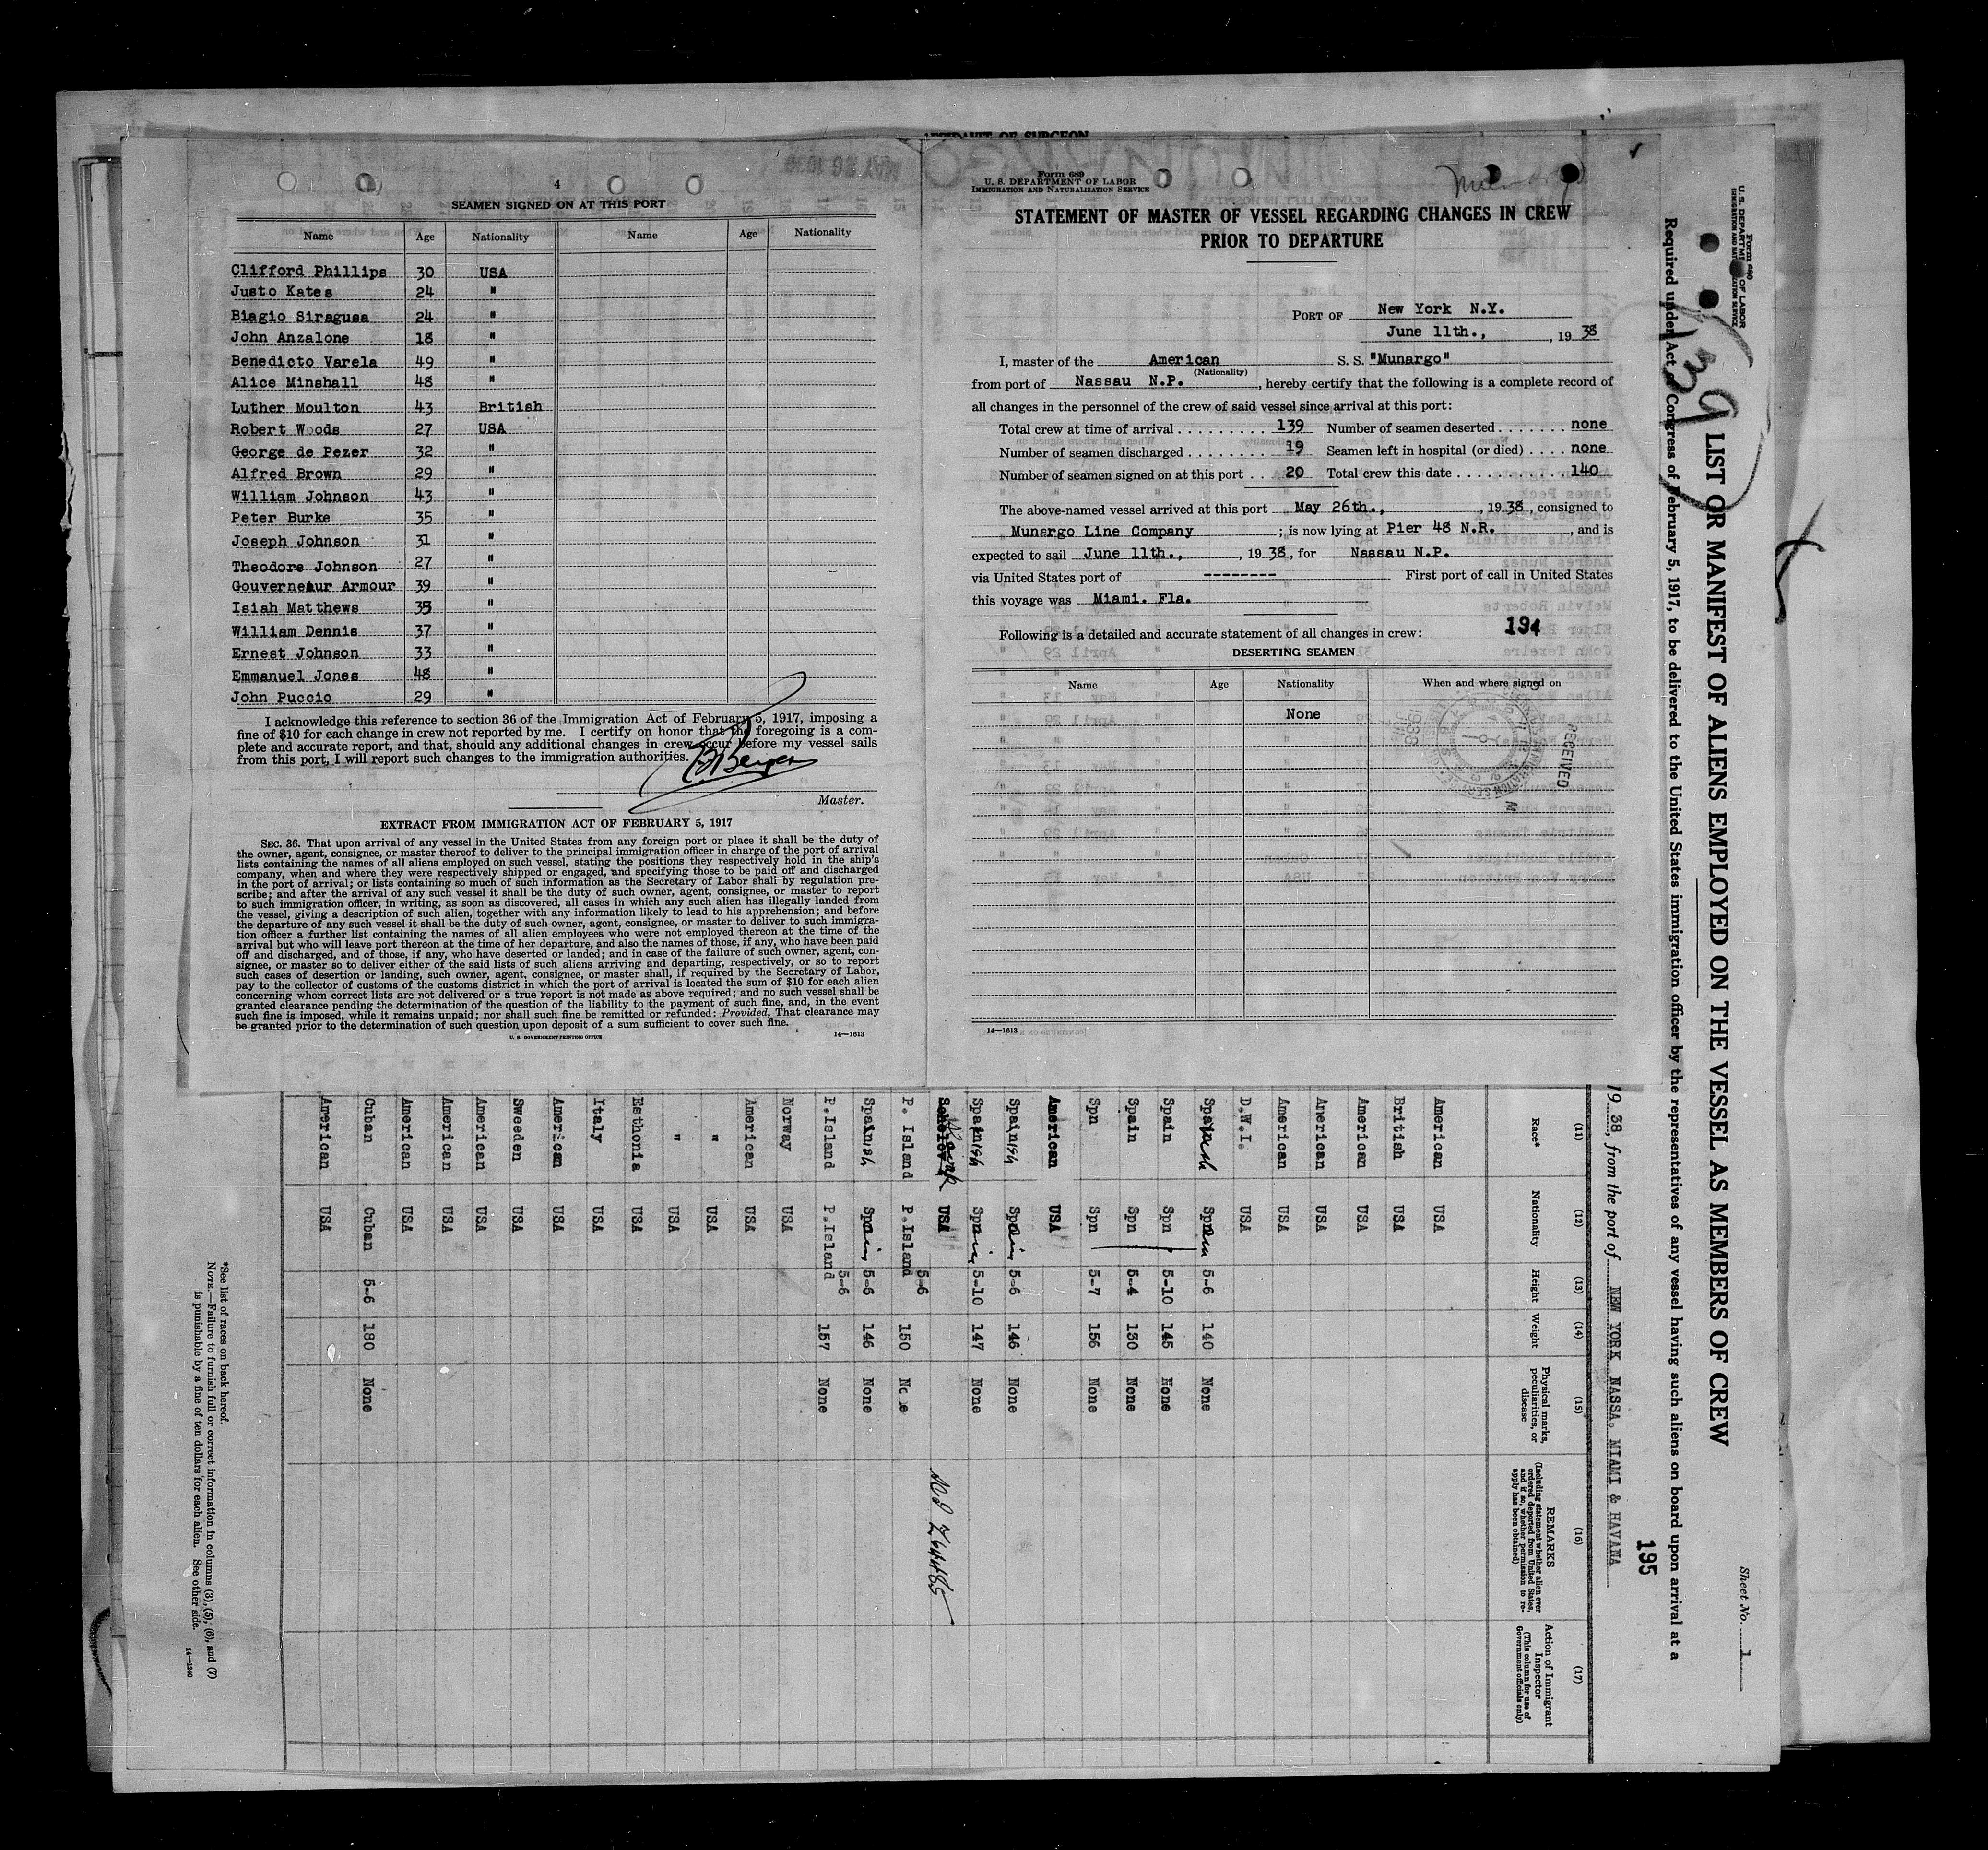 4
SEAMEN SIGNED ON AT THIS PORT
Name Age Nationality Name Age Nationality
Clifford Phillips 30 USA
Justo Kates 24 "
Biagio Siragusa 24 "
John Anzalone 18 "
Benedicto Varela 49 "
Alice Minshall 48 "
Luther Moulton 43 British
Robert Woods 27 USA
George de Pezer 32 "
Alfred Brown 29 "
William Johnson 43 "
Peter Burke 35 "
Joseph Johnson 31 "
Theodore Johnson 27 "
Gouverneaur Armour 39 "
Isiah Matthews 35 "
William Dennis 37 "
Ernest Johnson 33 "
Emmanuel Jones 48 "
John Puccio 29 "
I acknowledge this reference to section 36 of the Immigration Act of February 5, 1917, imposing a
fine of $10 for each change in crew not reported by me. I certify on honor that the foregoing is a com-
plete and accurate report, and that, should any additional changes in crew occur before my vessel sails
from this port, I will report such changes to the immigration authorities.
Master.
EXTRACT FROM IMMIGRATION ACT OF FEBRUARY 5, 1917
SEC. 36. That upon arrival of any vessel in the United States from any foreign port or place it shall be the duty of
the owner, agent, consignee, or master thereof to deliver to the principal immigration officer in charge of the port of arrival
lists containing the names of all aliens employed on such vessel, stating the positions they respectively hold in the ship's
company, when and where they were respectively shipped or engaged, and specifying those to be paid off and discharged
in the port of arrival; or lists containing so much of such information as the Secretary of Labor shall by regulation pre-
scribe; and after the arrival of any such vessel it shall be the duty of such owner, agent, consignee, or master to report
to such immigration officer, in writing, as soon as discovered, all cases in which any such alien has illegally landed from
the vessel, giving a description of such alien, together with any information likely to lead to his apprehension; and before
the departure of any such vessel it shall be the duty of such owner, agent, consignee, or master to deliver to such immigra-
tion officer a further list containing the names of all alien employees who were not employed thereon at the time of the
arrival but who will leave port thereon at the time of her departure, and also the names of those, if any, who have been paid
off and discharged, and of those, if any, who have deserted or landed; and in case of the failure of such owner, agent, con-
signee, or master so to deliver either of the said lists of such aliens arriving and departing, respectively, or so to report
such cases of desertion or landing, such owner, agent, consignee, or master shall, if required by the Secretary of Labor,
pay to the collector of customs of the customs district in which the port of arrival is located the sum of $10 for each alien
concerning whom correct lists are not delivered or a true report is not made as above required; and no such vessel shall be
granted clearance pending the determination of the question of the liability to the payment of such fine, and, in the event
such fine is imposed, while it remains unpaid; nor shall such fine be remitted or refunded: Provided, That clearance may
be granted prior to the determination of such question upon deposit of a sum sufficient to cover such fine.
U. S. GOVERNMENT PRINTING OFFICE 14—1613
AFFIDAVIT OF SURGEON
Form 689
U. S. DEPARTMENT OF LABOR
IMMIGRATION AND NATURALIZATION SERVICE
STATEMENT OF MASTER OF VESSEL REGARDING CHANGES IN CREW
PRIOR TO DEPARTURE
PORT OF New York N.Y.
June 11th., , 19 38
I, master of the American S. S. "Munargo"
(Nationality)
from port of Nassau N.P. , hereby certify that the following is a complete record of
all changes in the personnel of the crew of said vessel since arrival at this port:
Total crew at time of arrival 139 Number of seamen deserted none
Number of seamen discharged 19 Seamen left in hospital (or died) none
Number of seamen signed on at this port 20 Total crew this date 140
The above-named vessel arrived at this port May 26th., , 1938, consigned to
Munargo Line Company ; is now lying at Pier 48 N.R. , and is
expected to sail June 11th., , 1938, for Nassau N.P.
via United States port of --------- First port of call in United States
this voyage was Miami. Fla.
194
Following is a detailed and accurate statement of all changes in crew:
DESERTING SEAMEN
Name Age Nationality When and where signed on
None
RECEIVED
14—1613
Form 680
U. S. DEPARTMENT OF LABOR
IMMIGRATION AND NATURALIZATION SERVICE
Sheet No. 1
139
LIST OR MANIFEST OF ALIENS EMPLOYED ON THE VESSEL AS MEMBERS OF CREW
Required under Act of Congress of February 5, 1917, to be delivered to the United States immigration officer by the representatives of any vessel having such aliens on board upon arrival at a
195
19 38, from the port of NEW YORK NASSA. MIAMI & HAVANA
(11) (12) (13) (14) (15) (16) (17)
Race* Nationality Height Weight Physical marks, peculiarities, or disease REMARKS (Including statement whether alien ever ordered deported from United States, and if so, whether permission to re-apply has been obtained) Action of Immigrant Inspector (This column for use of Government officials only)
American USA
British USA
American USA
American USA
American USA
D.W.I. USA
Spanish Spain 5-6 140 None
Spain Spn 5-10 145 None
Spain Spn 5-4 130 None
Spn Spn 5-7 156 None
American USA
Spanish Spain 5-6 146 None
Spanish Spain 5-10 147 None
USA
P. Island P.Island 5-6 150 None
Spanish Spain 5-6 146 None
P.Island P.Island 5-6 157 None
Norway USA
American USA
" USA
" USA
Esthonia USA
Italy USA
American USA
Sweeden USA
American USA
American USA
American USA
Cuban Cuban 5-6 180 None
American USA
*See list of races on back hereof.
NOTE.—Failure to furnish full or correct information in columns (3), (5), (6), and (7)
is punishable by a fine of ten dollars for each alien. See other side.
14—1240